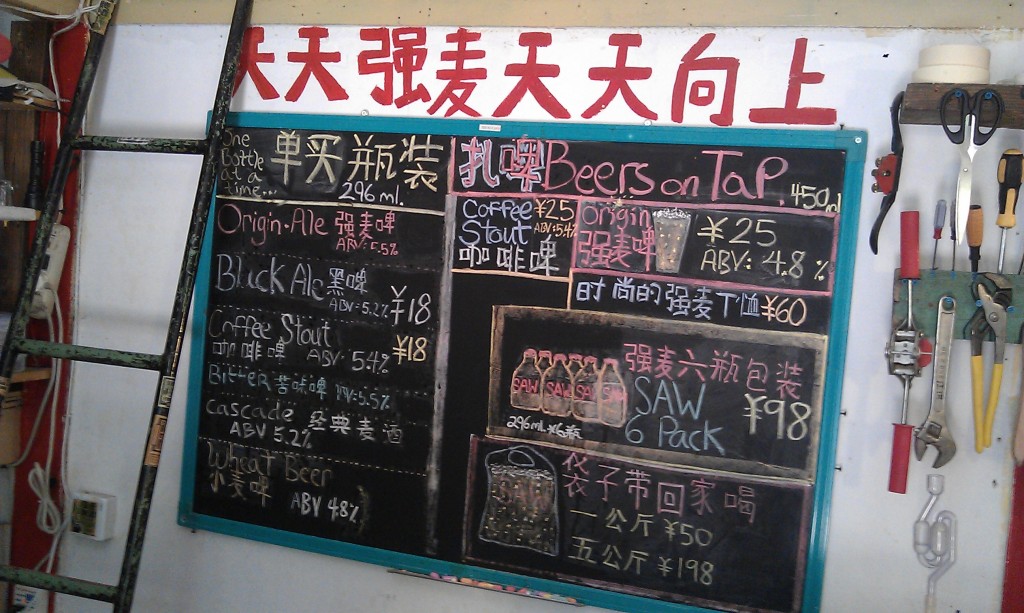 天天强麦天天向上
One
Bottle
at a
time...
单买瓶装
296 ml.
Origin·Ale 强麦啤
ABV: 5.5%
Black Ale 黑啤
ABV: 5.2% ¥18
Coffee Stout
咖啡啤 ABV: 5.4% ¥18
Bitter 苦味啤 ABV: 5.5%
cascade 经典麦酒
ABV 5.2%
Wheat Beer
小麦啤 ABV 4.8%
扎啤 Beers on Tap.
450ml
Coffee ¥25
Stout ABV: 5.4%
咖啡啤
Origin
强麦啤
¥25
ABV: 4.8%
时尚的强麦T恤 ¥60
SAW SAW SAW SAW
296ml.×6瓶
强麦六瓶包装
SAW
6 Pack
¥98
SAW
袋子带回家喝
一公斤 ¥50
五公斤 ¥198